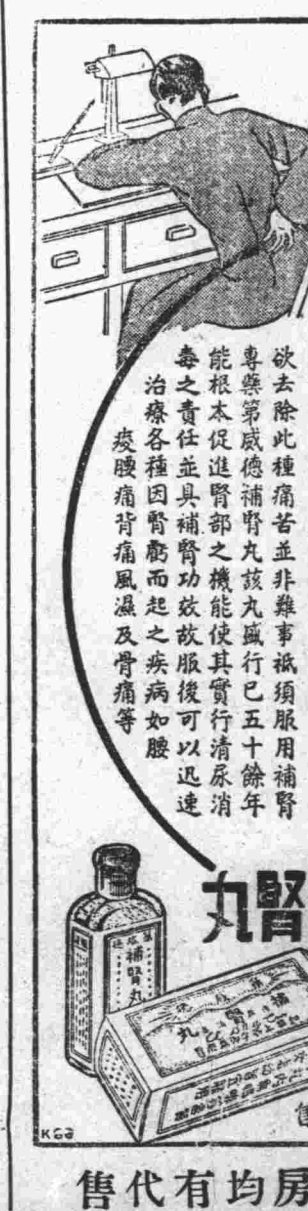 欲去除此種痛苦並非難事祇須服用補腎
專藥第威德補腎丸該丸盛行已五十餘年
能根本促進腎部之機能使其實行清尿消
毒之責任並具補腎功效故服後可以迅速
治療各種因腎虧而起之疾病如腰
痠腰痛背痛風濕及骨痛等
腎丸
補腎丸
補腎丸
K69
房均有代售